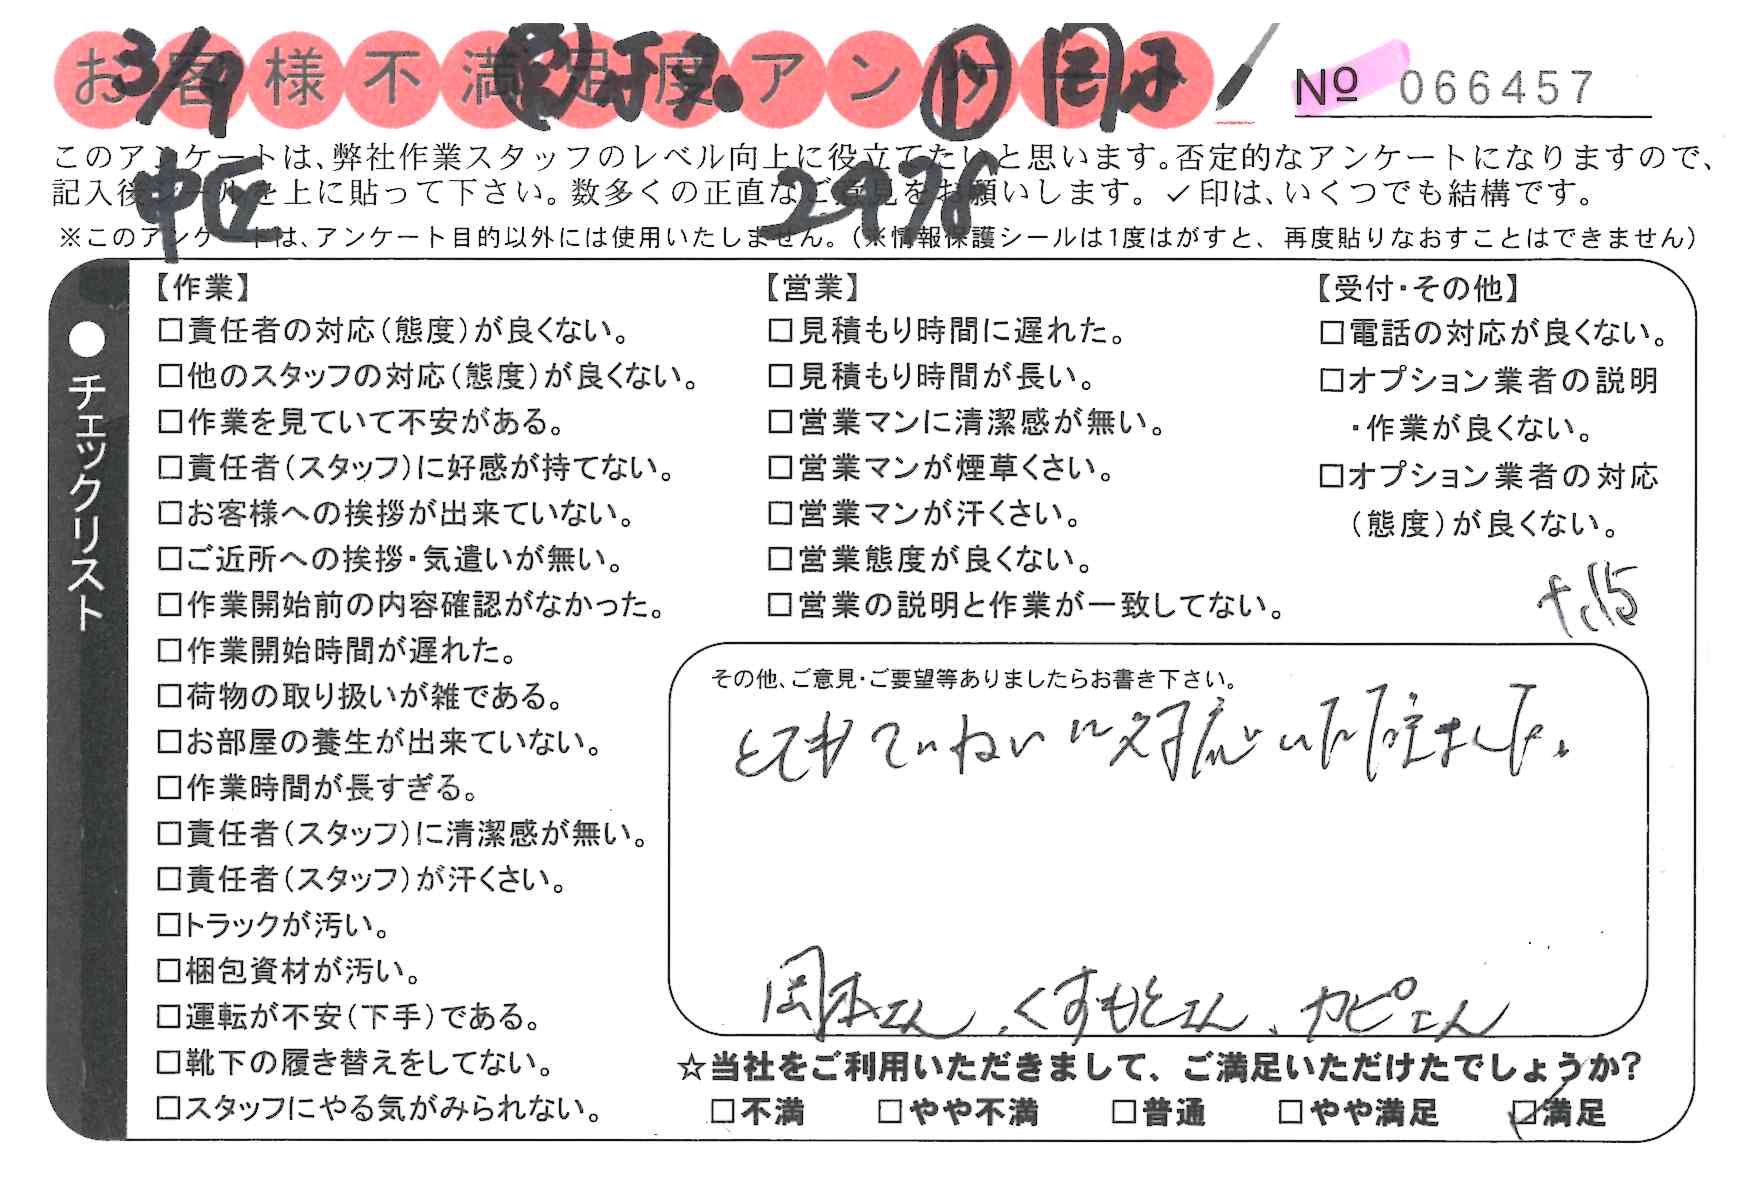 お客様不満足度アンケート
3/9
№ 066457
このアンケートは、弊社作業スタッフのレベル向上に役立てたいと思います。否定的なアンケートになりますので、
記入後シールを上に貼って下さい。数多くの正直なご意見をお願いします。✓印は、いくつでも結構です。
中区 2978
※このアンケートは、アンケート目的以外には使用いたしません。（※情報保護シールは1度はがすと、再度貼りなおすことはできません）
●チェックリスト
【作業】
□責任者の対応（態度）が良くない。
□他のスタッフの対応（態度）が良くない。
□作業を見ていて不安がある。
□責任者（スタッフ）に好感が持てない。
□お客様への挨拶が出来ていない。
□ご近所への挨拶・気遣いが無い。
□作業開始前の内容確認がなかった。
□作業開始時間が遅れた。
□荷物の取り扱いが雑である。
□お部屋の養生が出来ていない。
□作業時間が長すぎる。
□責任者（スタッフ）に清潔感が無い。
□責任者（スタッフ）が汗くさい。
□トラックが汚い。
□梱包資材が汚い。
□運転が不安（下手）である。
□靴下の履き替えをしてない。
□スタッフにやる気がみられない。
【営業】
□見積もり時間に遅れた。
□見積もり時間が長い。
□営業マンに清潔感が無い。
□営業マンが煙草くさい。
□営業マンが汗くさい。
□営業態度が良くない。
□営業の説明と作業が一致してない。
【受付・その他】
□電話の対応が良くない。
□オプション業者の説明
・作業が良くない。
□オプション業者の対応
（態度）が良くない。
その他、ご意見・ご要望等ありましたらお書き下さい。
とてもていねいに対応いただきました。
岡本さん、くすもとさん、カピさん
☆当社をご利用いただきまして、ご満足いただけたでしょうか?
□不満 □やや不満 □普通 □やや満足 ☑満足